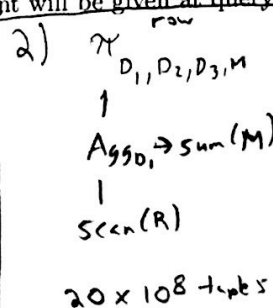 nt will be given at query
row
2) π D₁, D₂, D₃, M
Agg D₁, → sum(M)
scan(R)
20 × 10⁸ tuples